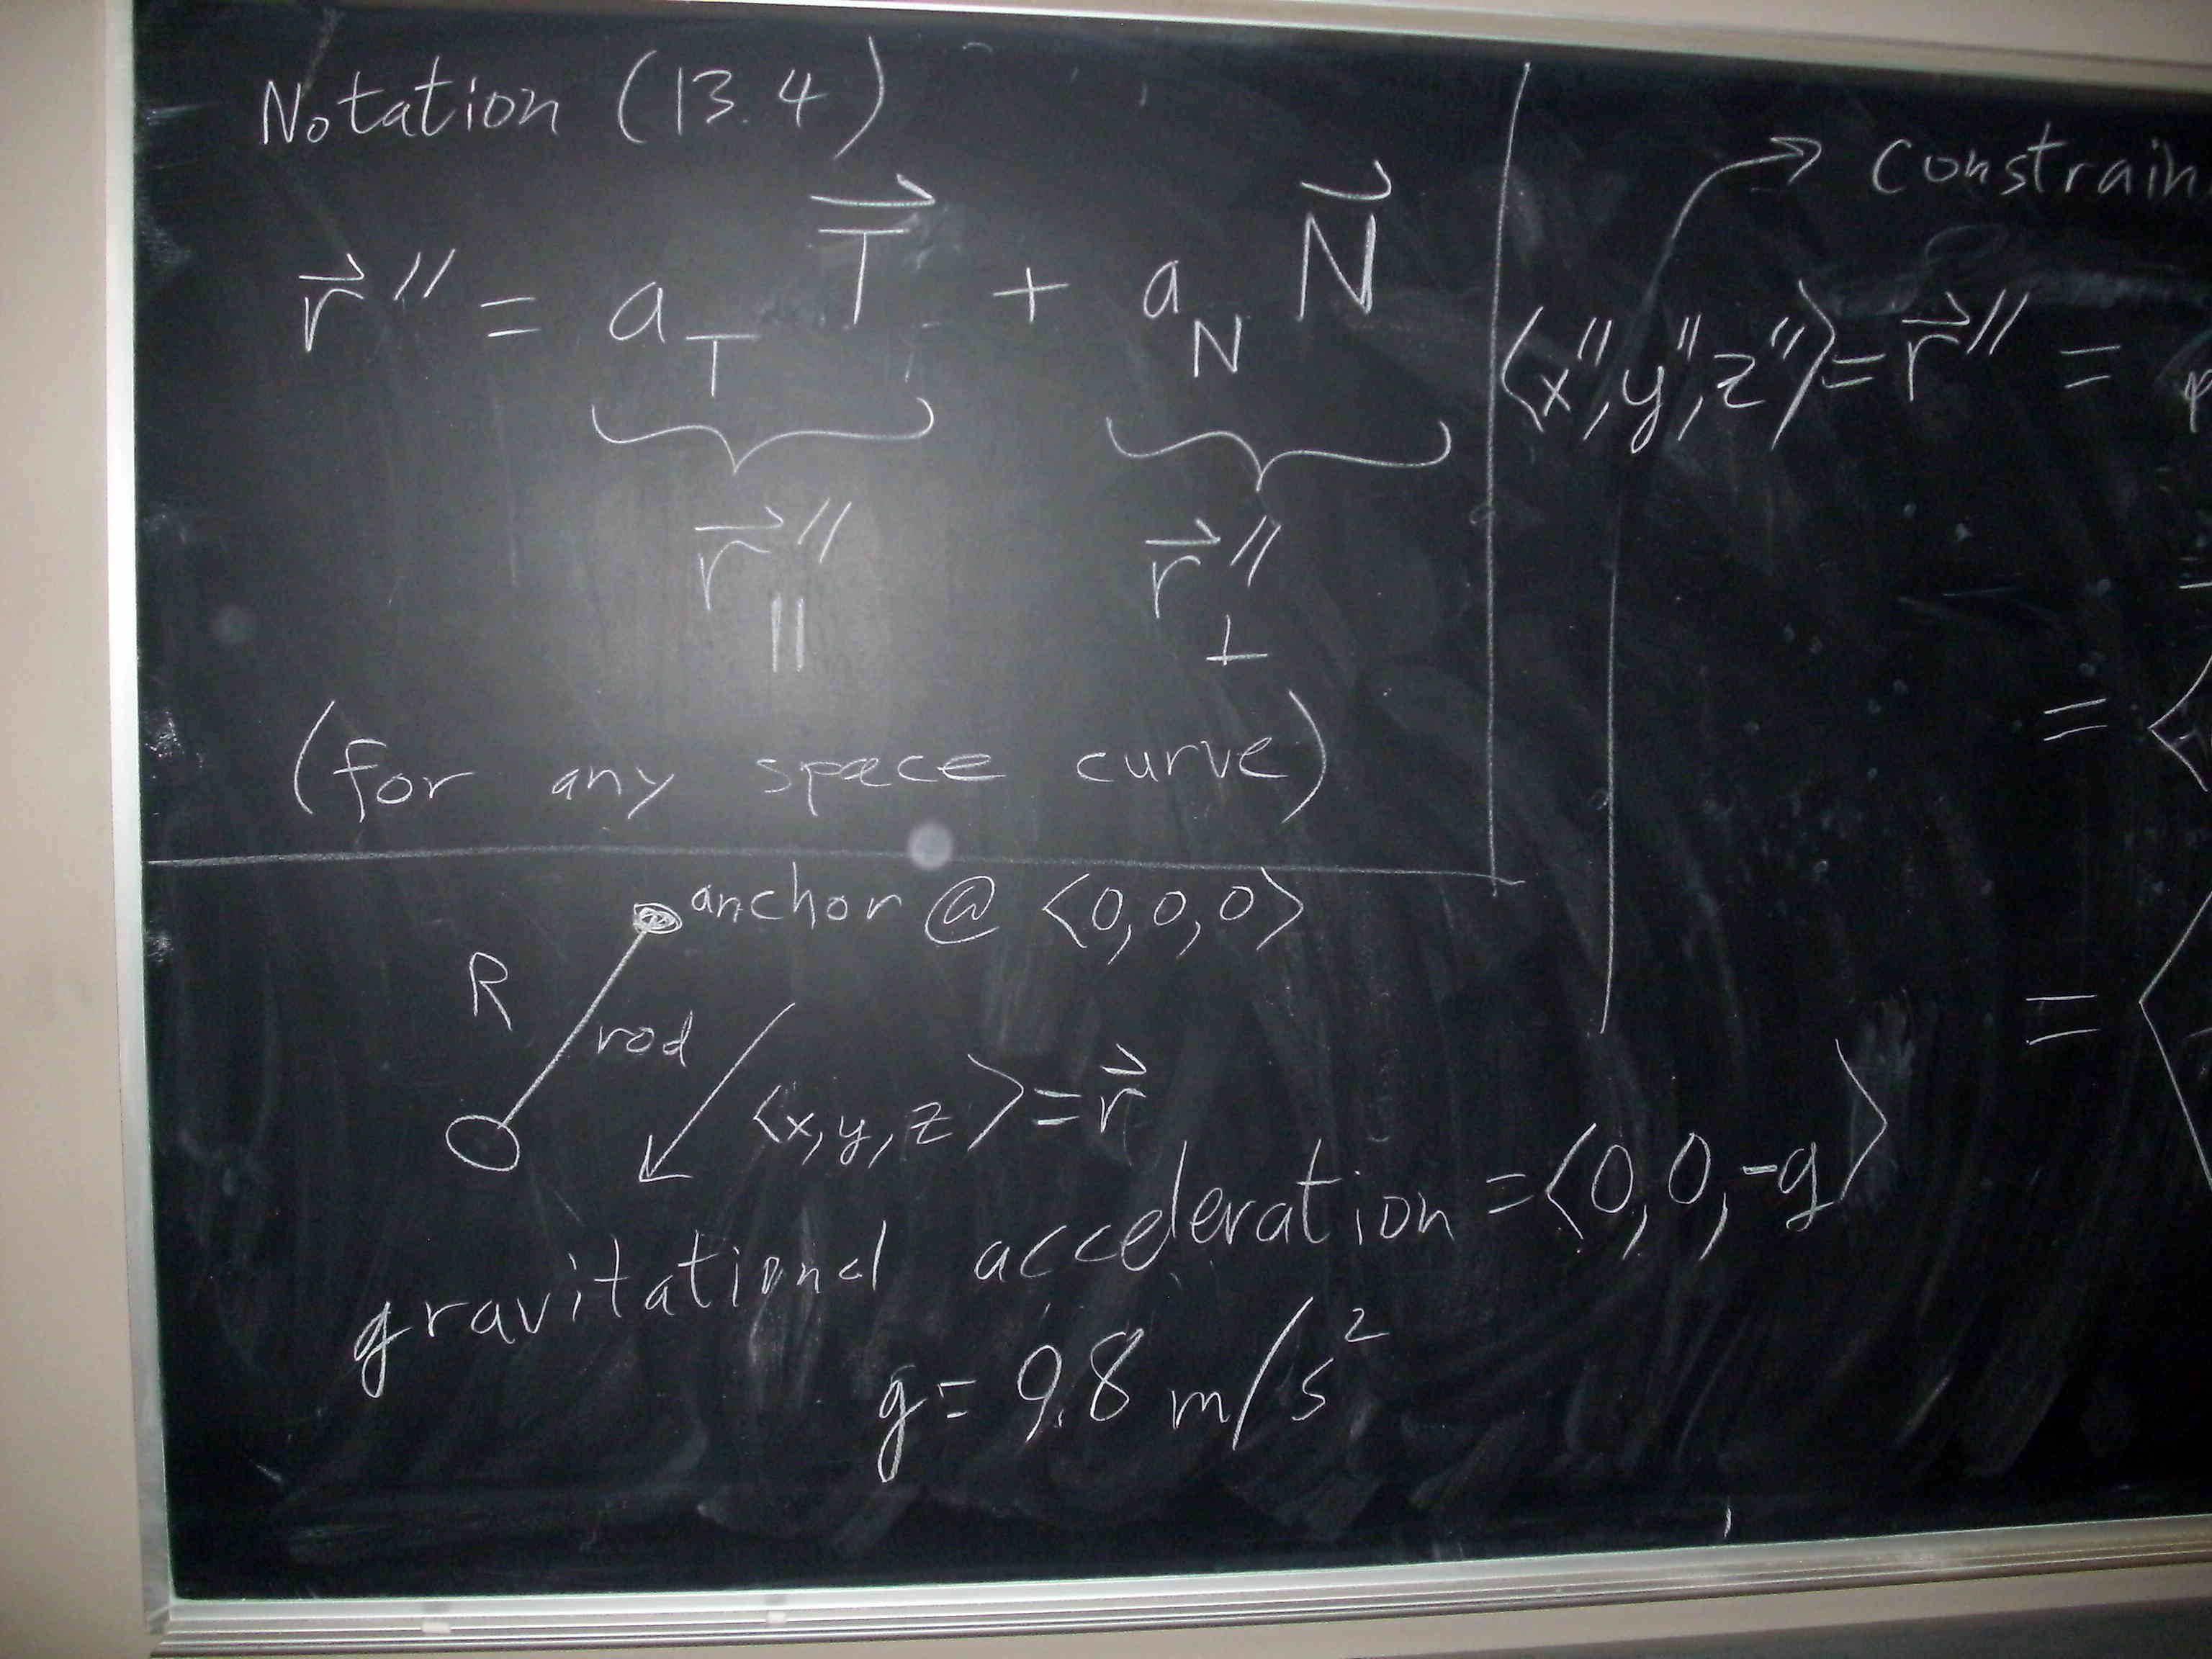 Notation (13.4)
r⃗″ = a_T T⃗ + a_N N⃗
r⃗″_∥ r⃗″_⊥
(for any space curve)
anchor @ <0,0,0>
R
rod
<x,y,z> = r⃗
gravitational acceleration = <0,0,-g>
g = 9.8 m/s²
→ constrain
<x″,y″,z″> = r⃗″ =
= <
= <